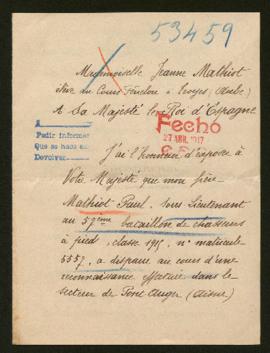 53459
Mademoiselle Jeanne Mathiot
élève du Cours Fénelon à Troyes (Aube)
A Sa Majesté le Roi d'Espagne
Fechó
27 ABR. 1917
Pedir informes
Que se hace en
Devolver
J'ai l'honneur d'exposer à
Votre Majesté que mon père
Mathiot Paul, Sous Lieutenant
au 57ème bataillon de chasseurs
à pied, classe 1915, n° matricule
5557, a disparu au cours d'une
reconnaissance effectuée dans le
secteur de (Aisne)